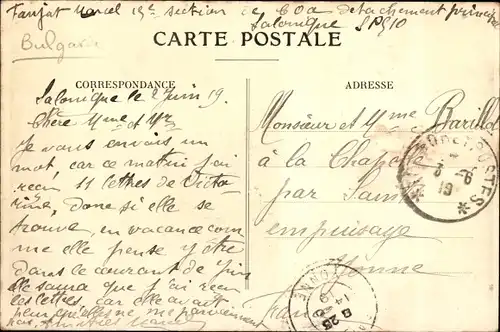 Farjat Marcel 19e section de COA détachement
Salonique SP510
Bulgarie
CARTE POSTALE
CORRESPONDANCE
ADRESSE
Salonique le 2 Juin 19.
Chère Mme et Mr
Je vous envois un
mot, car ce matin j'ai
reçu 11 lettres de Victo-
rine, Donc si elle se
trouve, en vacance com
me elle pense y être
dans le courant de Juin
elle saura que j'ai reçu
les lettres, car elle avait
peur qu'elles ne me parviennent
pas, Marcel
Monsieur et Mme Barilld
à la Chapelle
par Saint
en puisaye
Yonne
France
POSTES
3 - 6
19
YONNE